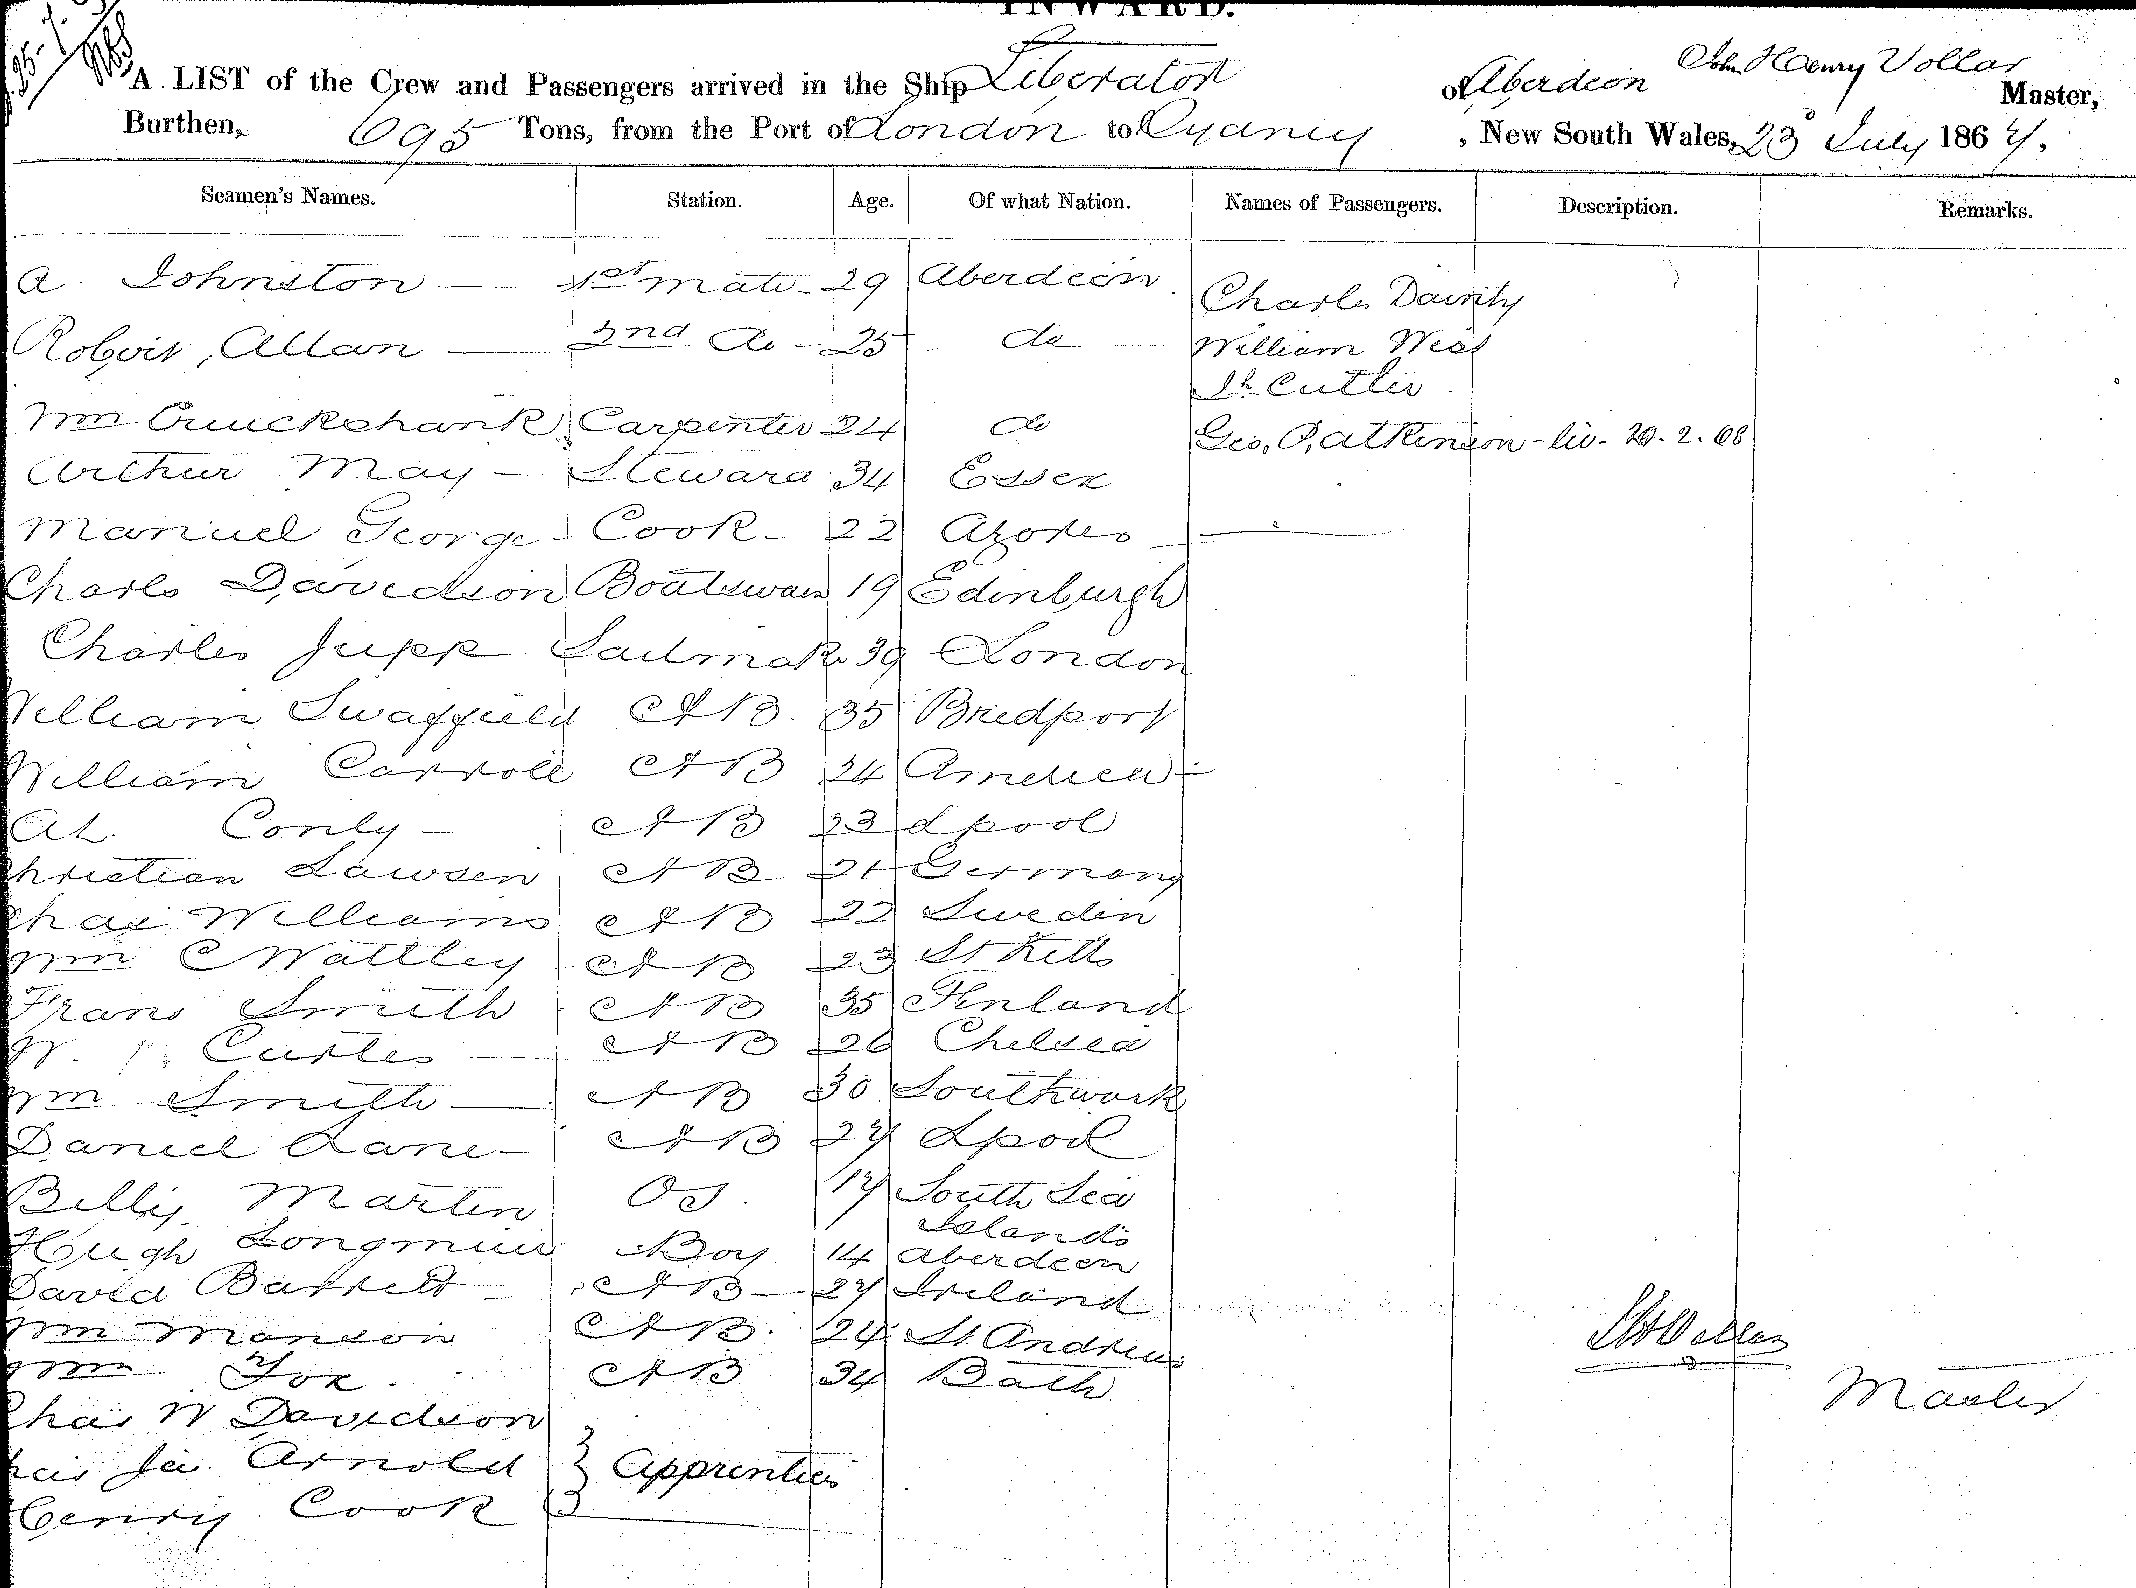 INWARD.
A LIST of the Crew and Passengers arrived in the Ship Liberator of Aberdeen John Henry Vollar Master,
Burthen, 695 Tons, from the Port of London to Sydney, New South Wales, 23 July 1867.
Seamen's Names. Station. Age. Of what Nation. Names of Passengers. Description. Remarks.
A Johnston 1st mate 29 Aberdeen Charles Dainty
Robert Allan 2nd do 25 do William West
Cutler
Wm Cruickshank Carpenter 24 do Geo. P. Atkinson - liv. 20.2.08
Arthur May Steward 34 Essex
Manuel George Cook 22 Azores
Charles Davidson Boatswain 19 Edinburgh
Charles Jupp Sailmakr 39 London
William Swaffield AB 35 Bridport
William Carroll AB 24 America
Conly AB 23 Lpool
Christian Lawsen AB 21 Germany
Chas Williams AB 22 Sweden
Wm C Wattley AB 23 St Kitts
Frans Smith AB 35 Finland
W. Curtes AB 26 Chelsea
Wm Smith AB 30 Southwark
Daniel Lane AB 27 Lpool
Billy Martin OS 17 South Sea
Islands
Hugh Longmuir Boy 14 Aberdeen
David Barrett AB 27 Ireland
Wm Manson AB 24 St Andrews
Wm Fox AB 34 Bath
JH Vollar
Master
Chas W Davidson
Arnold Apprentices
Henry Cook